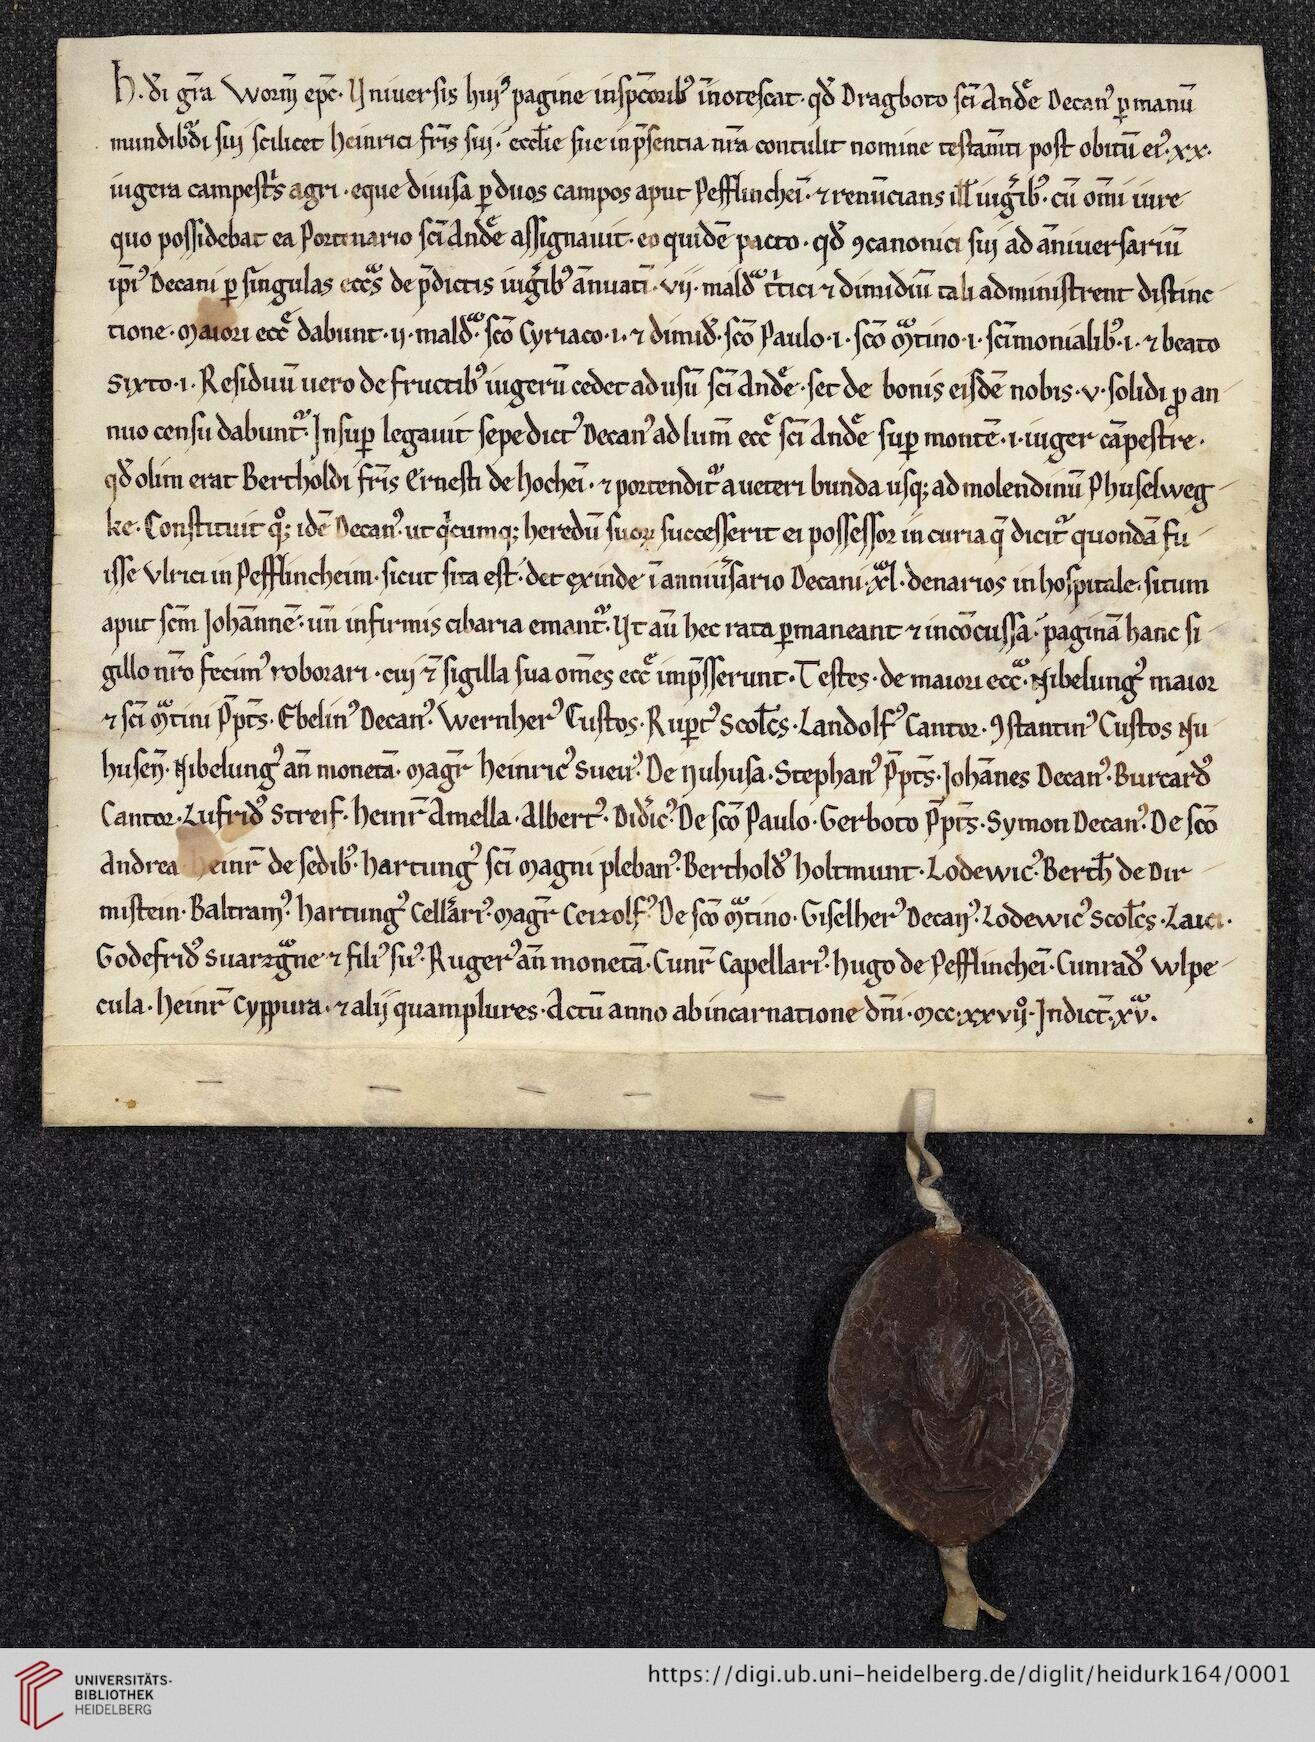 h. di gr̄a Worm̄ ep̄c. Vniuersis huiꝰ pagine insp̄ctoribꝰ īnotescat. qd̄ Dragboto sc̄i Andͤe Decanꝰ ꝑ manū
mundibᷣdi sui scilicet heinrici fr̄is sui. eccl̄ie sue in p̄sentia nr̄a contulit nomine testam̄ti post obitū eiꝰ. xx.
iugera campestᷤs agri. eque diuisa ꝑ duos campos aput Pefflincheī. ⁊ renūcians ill̄ iugᷣibꝰ. cū om̄i iure
quo possidebat ea Portenario sc̄i Andͤe assignauit. eo quidē pacto. qd̄ ꝯcanonici sui ad āniuersariū
ip̄iꝰ Decani ꝑ singulas eccᷤs de p̄dictis iugᷣibꝰ ānuatī. vii. maldᷓ tᷤtici ⁊ dimidiū tali administrent distinc-
tione. Maiori eccͤ dabunt. ij. maldᷓ. sc̄o Cyriaco. i. ⁊ dimid̄. sc̄o Paulo. i. sc̄o Mᷓtino. i. sc̄imonialibꝰ. i. ⁊ beato
Sixto. i. Residuū uero de fructibꝰ iugerū cedet ad usū sc̄i Andͤe. set de bonis eisdē nobis. v. solidi ꝓ an-
nuo censu dabuntᷣ. Insuꝑ legauit sepedictꝰ Decanꝰ ad lum̄ eccͤ sc̄i Andͤe suꝑ montē. i. iuger cāpestre.
qd̄ olim erat Bertholdi fr̄is Ernesti de hocheī. ⁊ portenditᷣ a ueteri bunda usq; ad molendinū Phuselweg-
ke. Constituit qͦ; idē Decanꝰ. ut qͥcumq; heredū suoꝝ successerit ei possessor in curia q̄ dicitᷣ quondā fu-
isse Vlrici in Pefflincheim. sicut sita est. det exinde ī anniuᷣsario Decani. xᷓl. denarios in hospitale. situm
aput sc̄m Johānnē. un̄ infirmis cibaria emantᷣ. Vt aū hec rata ꝑmaneant ⁊ incōcussa. paginā hanc si-
gillo nr̄o fecimꝰ roborari. cui ⁊̄ sigilla sua om̄es eccͤ imp̄sserunt. Testes. de maiori eccᷓ. Nibelungꝰ maior
⁊ sc̄i Mᷓtini P̄pt̄s. Ebelinꝰ Decanꝰ. Wernherꝰ Custos. Ruꝑtꝰ Scol̄cs. Landolfꝰ Cantor. ꝯstantinꝰ Custos Nu-
husen̄. Nibelungꝰ an̄ monetā. Mag̅r heinricꝰ Sueuꝰ. De Nuhusa. Stephanꝰ P̄pt̄s. Johānes Decanꝰ. Burcardꝰ
Cantor. Lufridꝰ Streif. heinr̄ Amella. Albertꝰ. Didᷣicꝰ. De sc̄o Paulo. Gerboto P̄pt̄s. Symon Decanꝰ. De sc̄o
Andrea. heinr̄ de sedibꝰ. hartungꝰ sc̄i Magni plebanꝰ. Bertholdꝰ holtmunt. Lodewicꝰ. Berth̄ de Dir-
mistein. Baltramꝰ. hartungꝰ Cellᷓariꝰ. Mag̅r Ceizolfꝰ. De sc̄o Mᷓtino. Giselherꝰ Decanꝰ. Lodewicꝰ Scol̄cs. Laici.
Godefridꝰ Suarzgᷓne ⁊ filiꝰ suꝰ. Rugerꝰ an̄ monetā. Cunr̄ Capellariꝰ. hugo de Pefflincheī. Cunradꝰ Wlpe-
cula. heinr̄ Cyppura. ⁊ alij quamplures. Actū anno ab incarnatione dn̄i. Mcc. xxvijͦ. Indict̄. xvᷓ.
UNIVERSITÄTS-
BIBLIOTHEK
HEIDELBERG
https://digi.ub.uni-heidelberg.de/diglit/heidurk164/0001